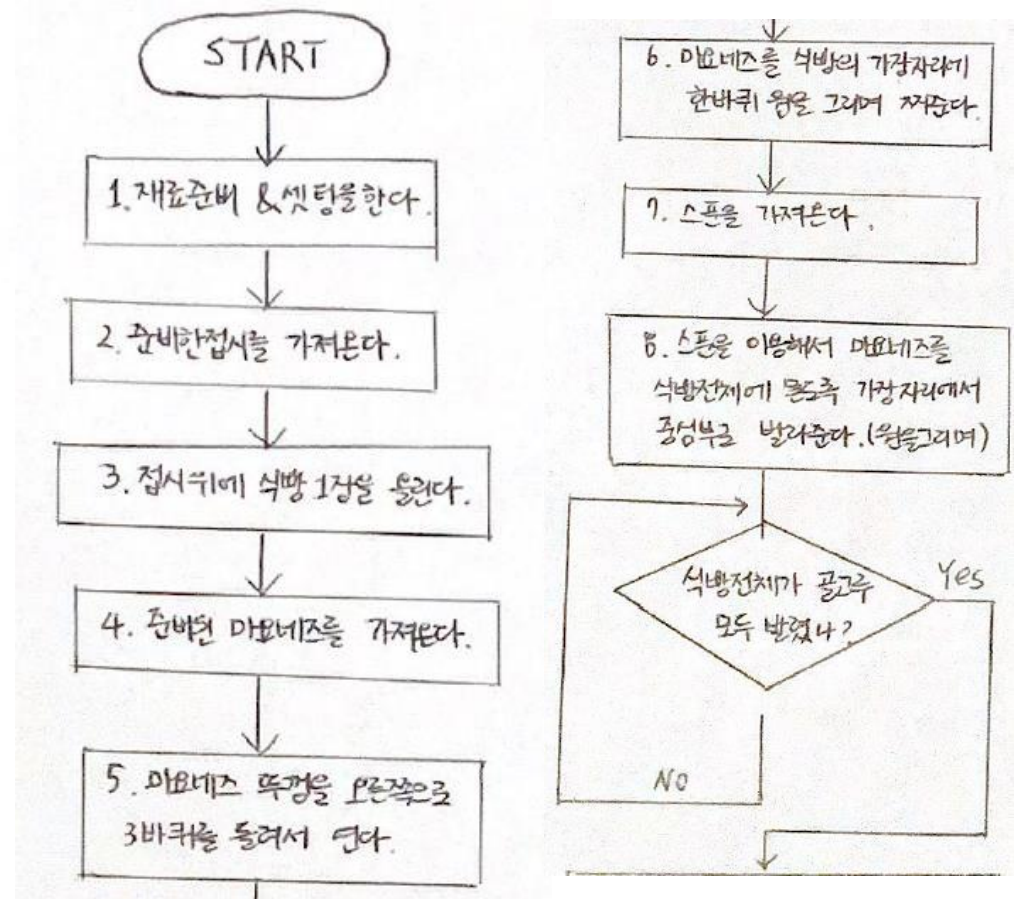 START
1. 재료준비 & 셋팅을한다.
2. 준비한접시를 가져온다.
3. 접시위에 식빵 1장을 올린다.
4. 준비된 마요네즈를 가져온다.
5. 마요네즈 뚜껑을 오른쪽으로
3바퀴를 돌려서 연다.
6. 마요네즈를 식빵의 가장자리에
한바퀴 원을 그리며 짜준다.
7. 스푼을 가져온다.
8. 스푼을 이용해서 마요네즈를
식빵전체에 묻도록 가장자리에서
중심부로 발라준다.(원을그리며)
식빵전체가 골고루
모두 발렸나?
Yes
NO